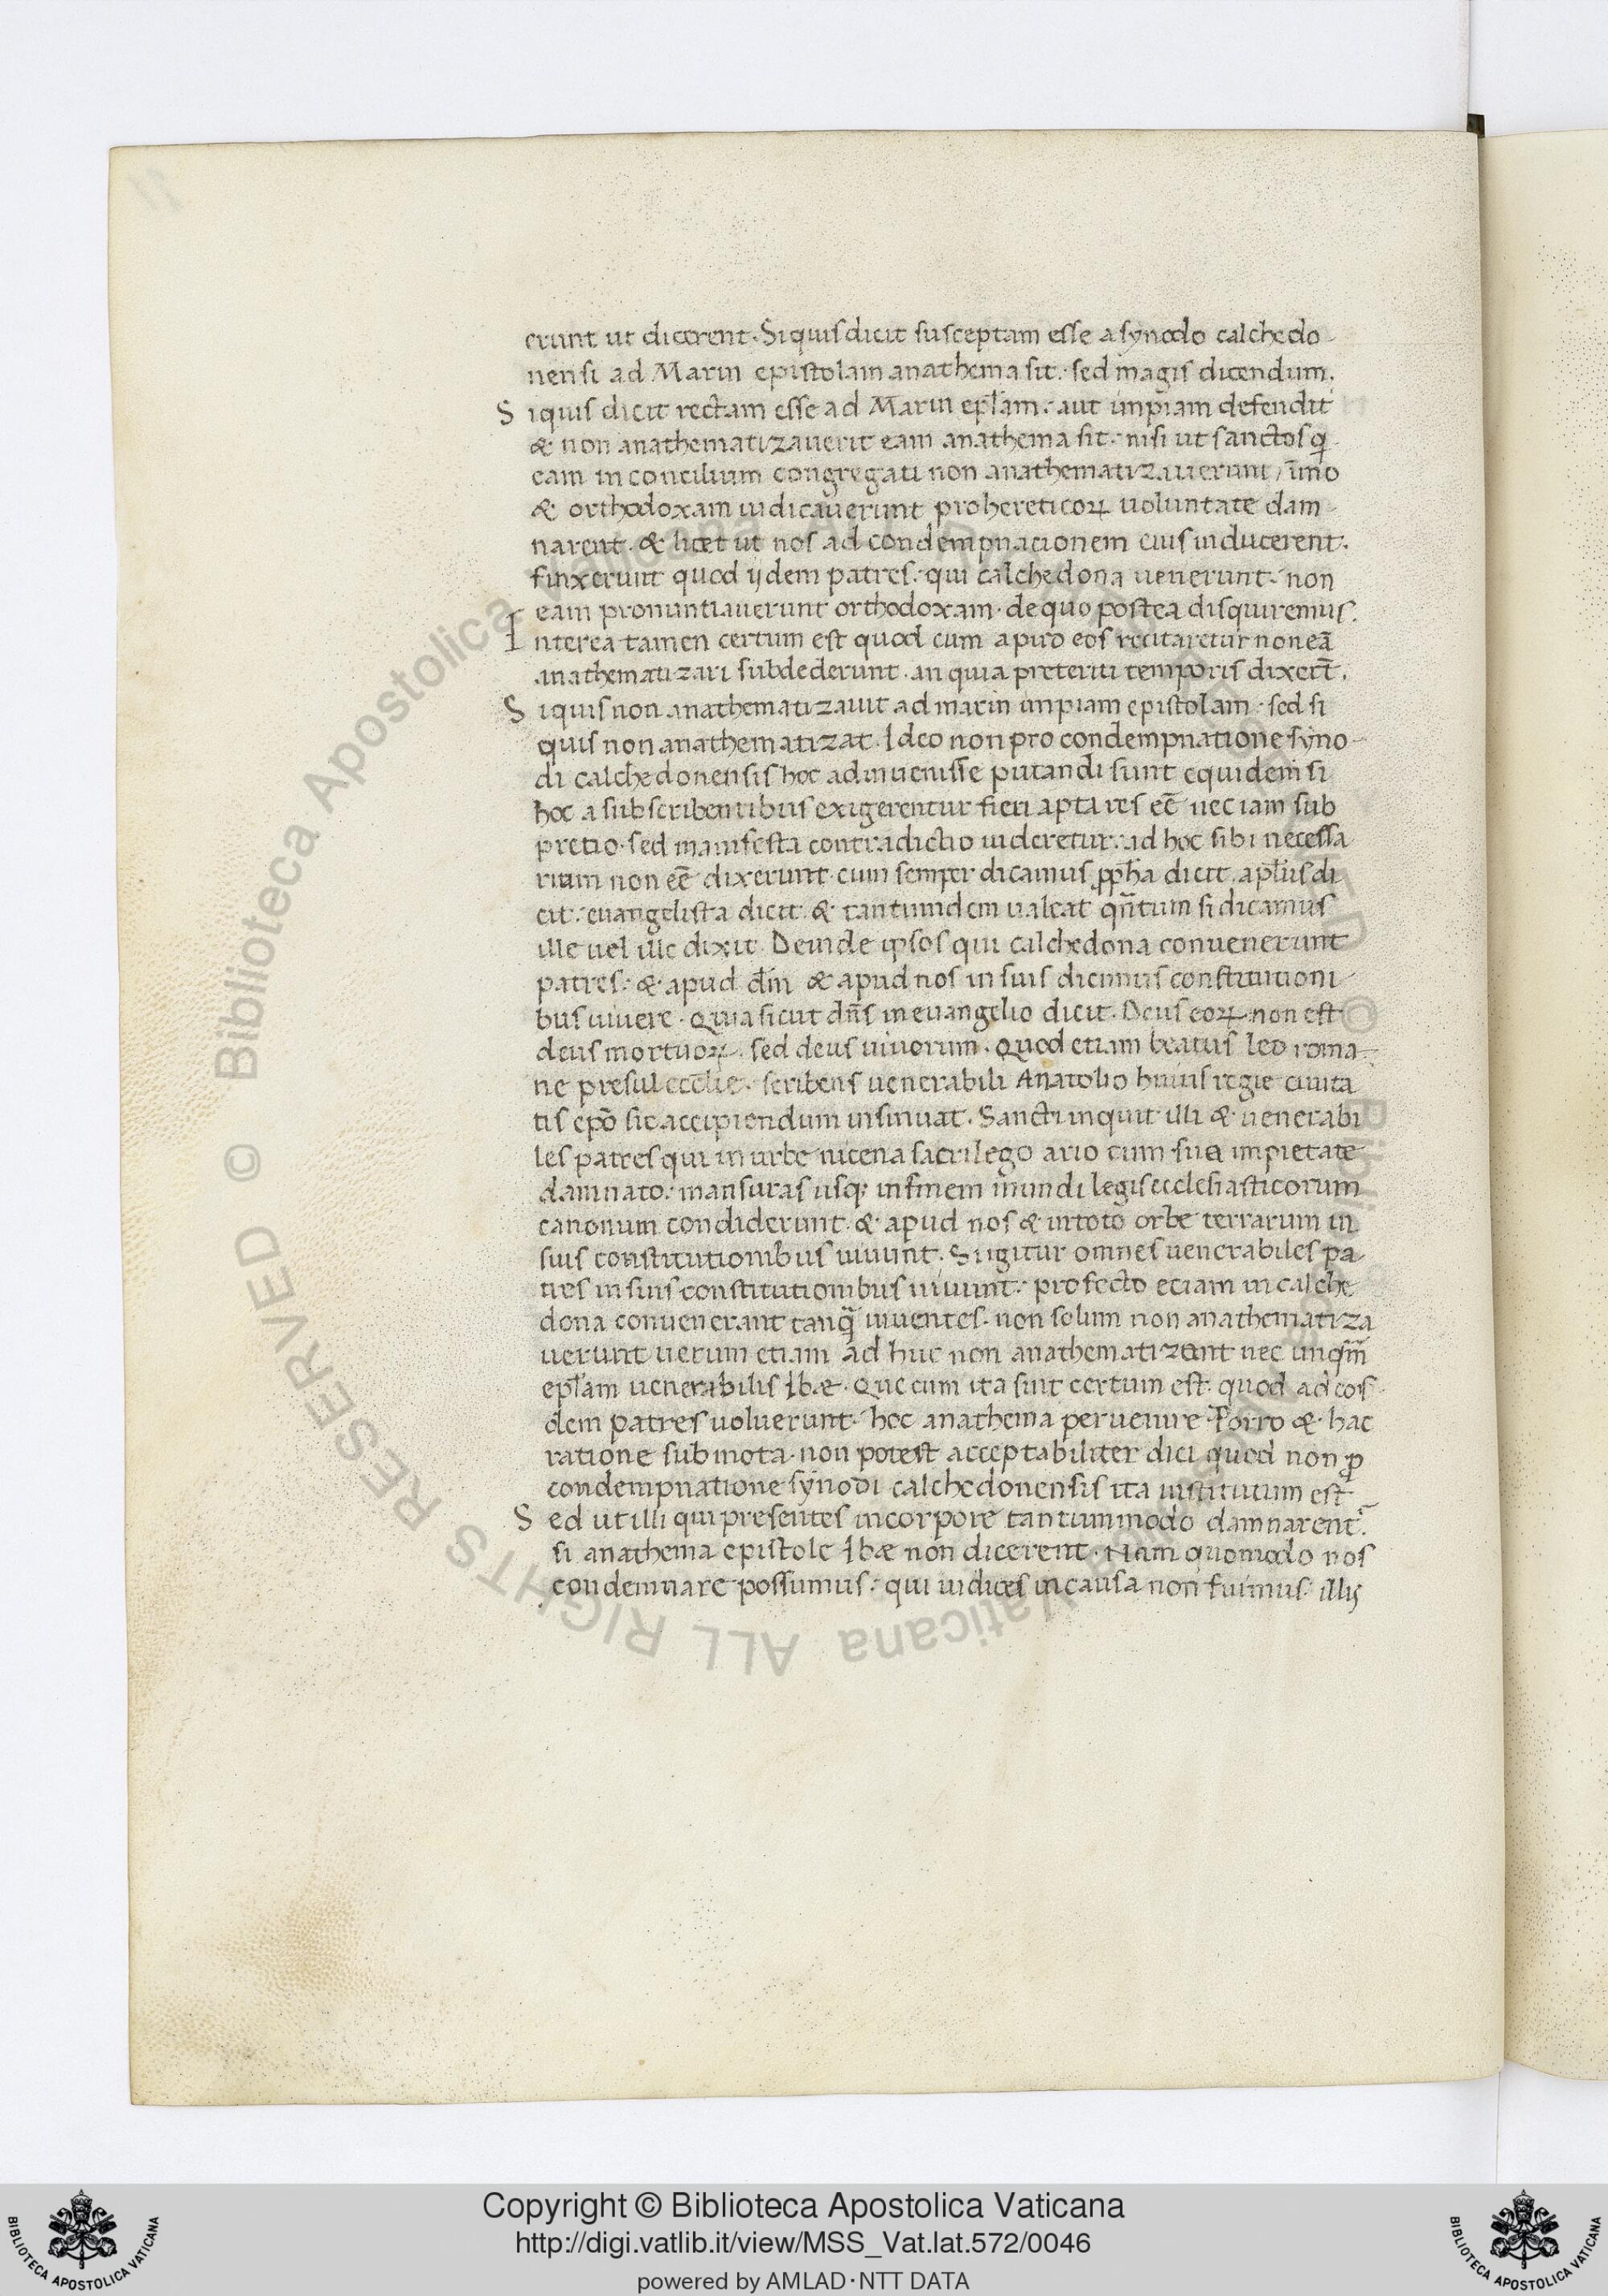 erunt ut dicerent. Siquis dicit susceptam esse a synodo calchedo-
nensi ad Marin epistolam anathema sit. sed magis dicendum.
Siquis dicit rectam esse ad Marin epl̃am. aut impiam defendit
& non anathematizauerit eam anathema sit. nisi ut sanctos q̣
eam in concilium congregati non anathematizauerunt, im̃o
& orthodoxam iudicauerunt pro hereticoꝝ uoluntate dam-
narent. & licet ut nos ad condempnacionem eius inducerent.
finxerunt quod ijdem patres. qui calchedona uenerunt. non
eam pronuntiauerunt orthodoxam. de quo postea disquiremus.
Interea tamen certum est quod cum apud eos recitaretur non eã
anathematizari subdederunt. an quia preteriti temporis dixert̃.
Siquis non anathematizauit ad marin impiam epistolam. sed si
quis non anathematizat. Ideo non pro condempnatione syno-
di calchedonensis hoc adinuenisse putandi sunt equidem si
hoc a subscribentibus exigerentur fieri apta res eẽ nec iam sub
pretio. sed manifesta contradictio uideretur. ad hoc sibi necessa
rium non eẽ dixerunt. cum semper dicamus ꝓpħa dicit. apl̃us di
cit. euangelista dicit. & tantumdem ualeat qñtum si dicamus
ille uel ille dixit. Deinde ipsos qui calchedona conuenerunt
patres. & apud dm̃ & apud nos in suis dicimus constitutioni-
bus uiuere. Quia sicut dñs in euangelio dicit. Deus eoꝝ non est
deus mortuoꝝ. sed deus uiuorum. Quod etiam beatus leo roma-
ne presul eccl̃ie. scribens uenerabili Anatolio huius regie ciuita
tis epõ sic accipiendum insinuat. Sancti inquit illi & uenerabi
les patres qui in urbe nicena sacrilego ario cum sua impietate
damnato. mansuras usq; in finem mundi legis ecclesiasticorum
canonum condiderunt. & apud nos & in toto orbe terrarum in
suis constitutionibus uiuunt. Si igitur omnes uenerabiles pa-
tres in suis constitutionibus uiuunt. profecto eciam in calche
dona conuenerant tanq̃ uiuentes. non solum non anathematiza
uerunt uerum etiam ad huc non anathematizant nec unqm̃
epl̃am uenerabilis Ibæ. Que cum ita sint certum est. quod ad eos-
dem patres uoluerunt. hoc anathema peruenire. Porro & hac
ratione submota. non potest acceptabiliter dici quod non ꝓ
condempnatione synodi calchedonensis ita institutum est
Sed ut illi qui presentes in corpore tantummodo damnarent̃.
si anathema epistole Ibæ non dicerent. Nam quomodo nos
condemnare possumus. qui iudices in causa non fuimus. illis
Copyright © Biblioteca Apostolica Vaticana
http://digi.vatlib.it/view/MSS_Vat.lat.572/0046
powered by AMLAD·NTT DATA
BIBLIOTECA APOSTOLICA VATICANA
BIBLIOTECA APOSTOLICA VATICANA